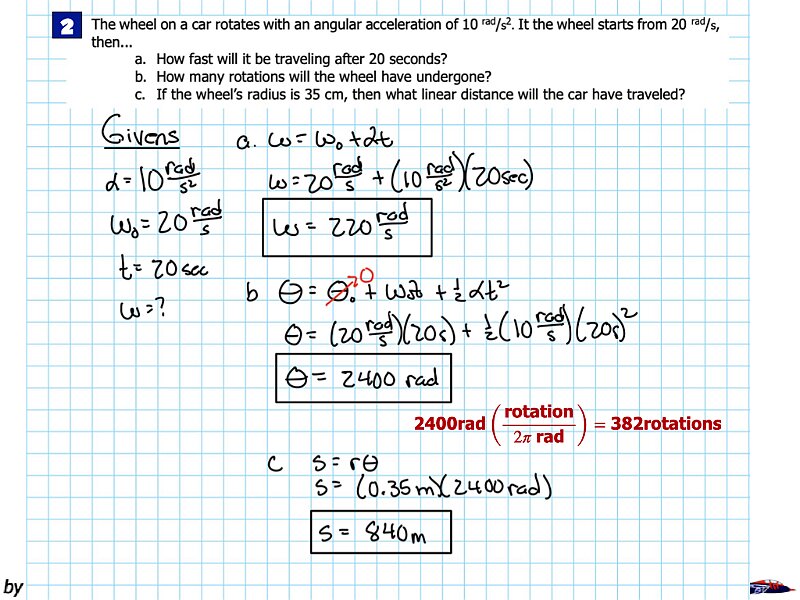 2 The wheel on a car rotates with an angular acceleration of 10 rad/s². It the wheel starts from 20 rad/s,
then...
a. How fast will it be traveling after 20 seconds?
b. How many rotations will the wheel have undergone?
c. If the wheel's radius is 35 cm, then what linear distance will the car have traveled?
Givens
α = 10 rad/s²
ω₀ = 20 rad/s
t = 20 sec
ω = ?
a. ω = ω₀ + αt
ω = 20 rad/s + (10 rad/s²)(20 sec)
ω = 220 rad/s
b θ = θ₀ 0 + ω₀t + ½ αt²
θ = (20 rad/s)(20s) + ½(10 rad/s)(20s)²
θ = 2400 rad
2400rad (rotation / 2π rad) = 382rotations
c s = rθ
s = (0.35 m)(2400 rad)
s = 840 m
by